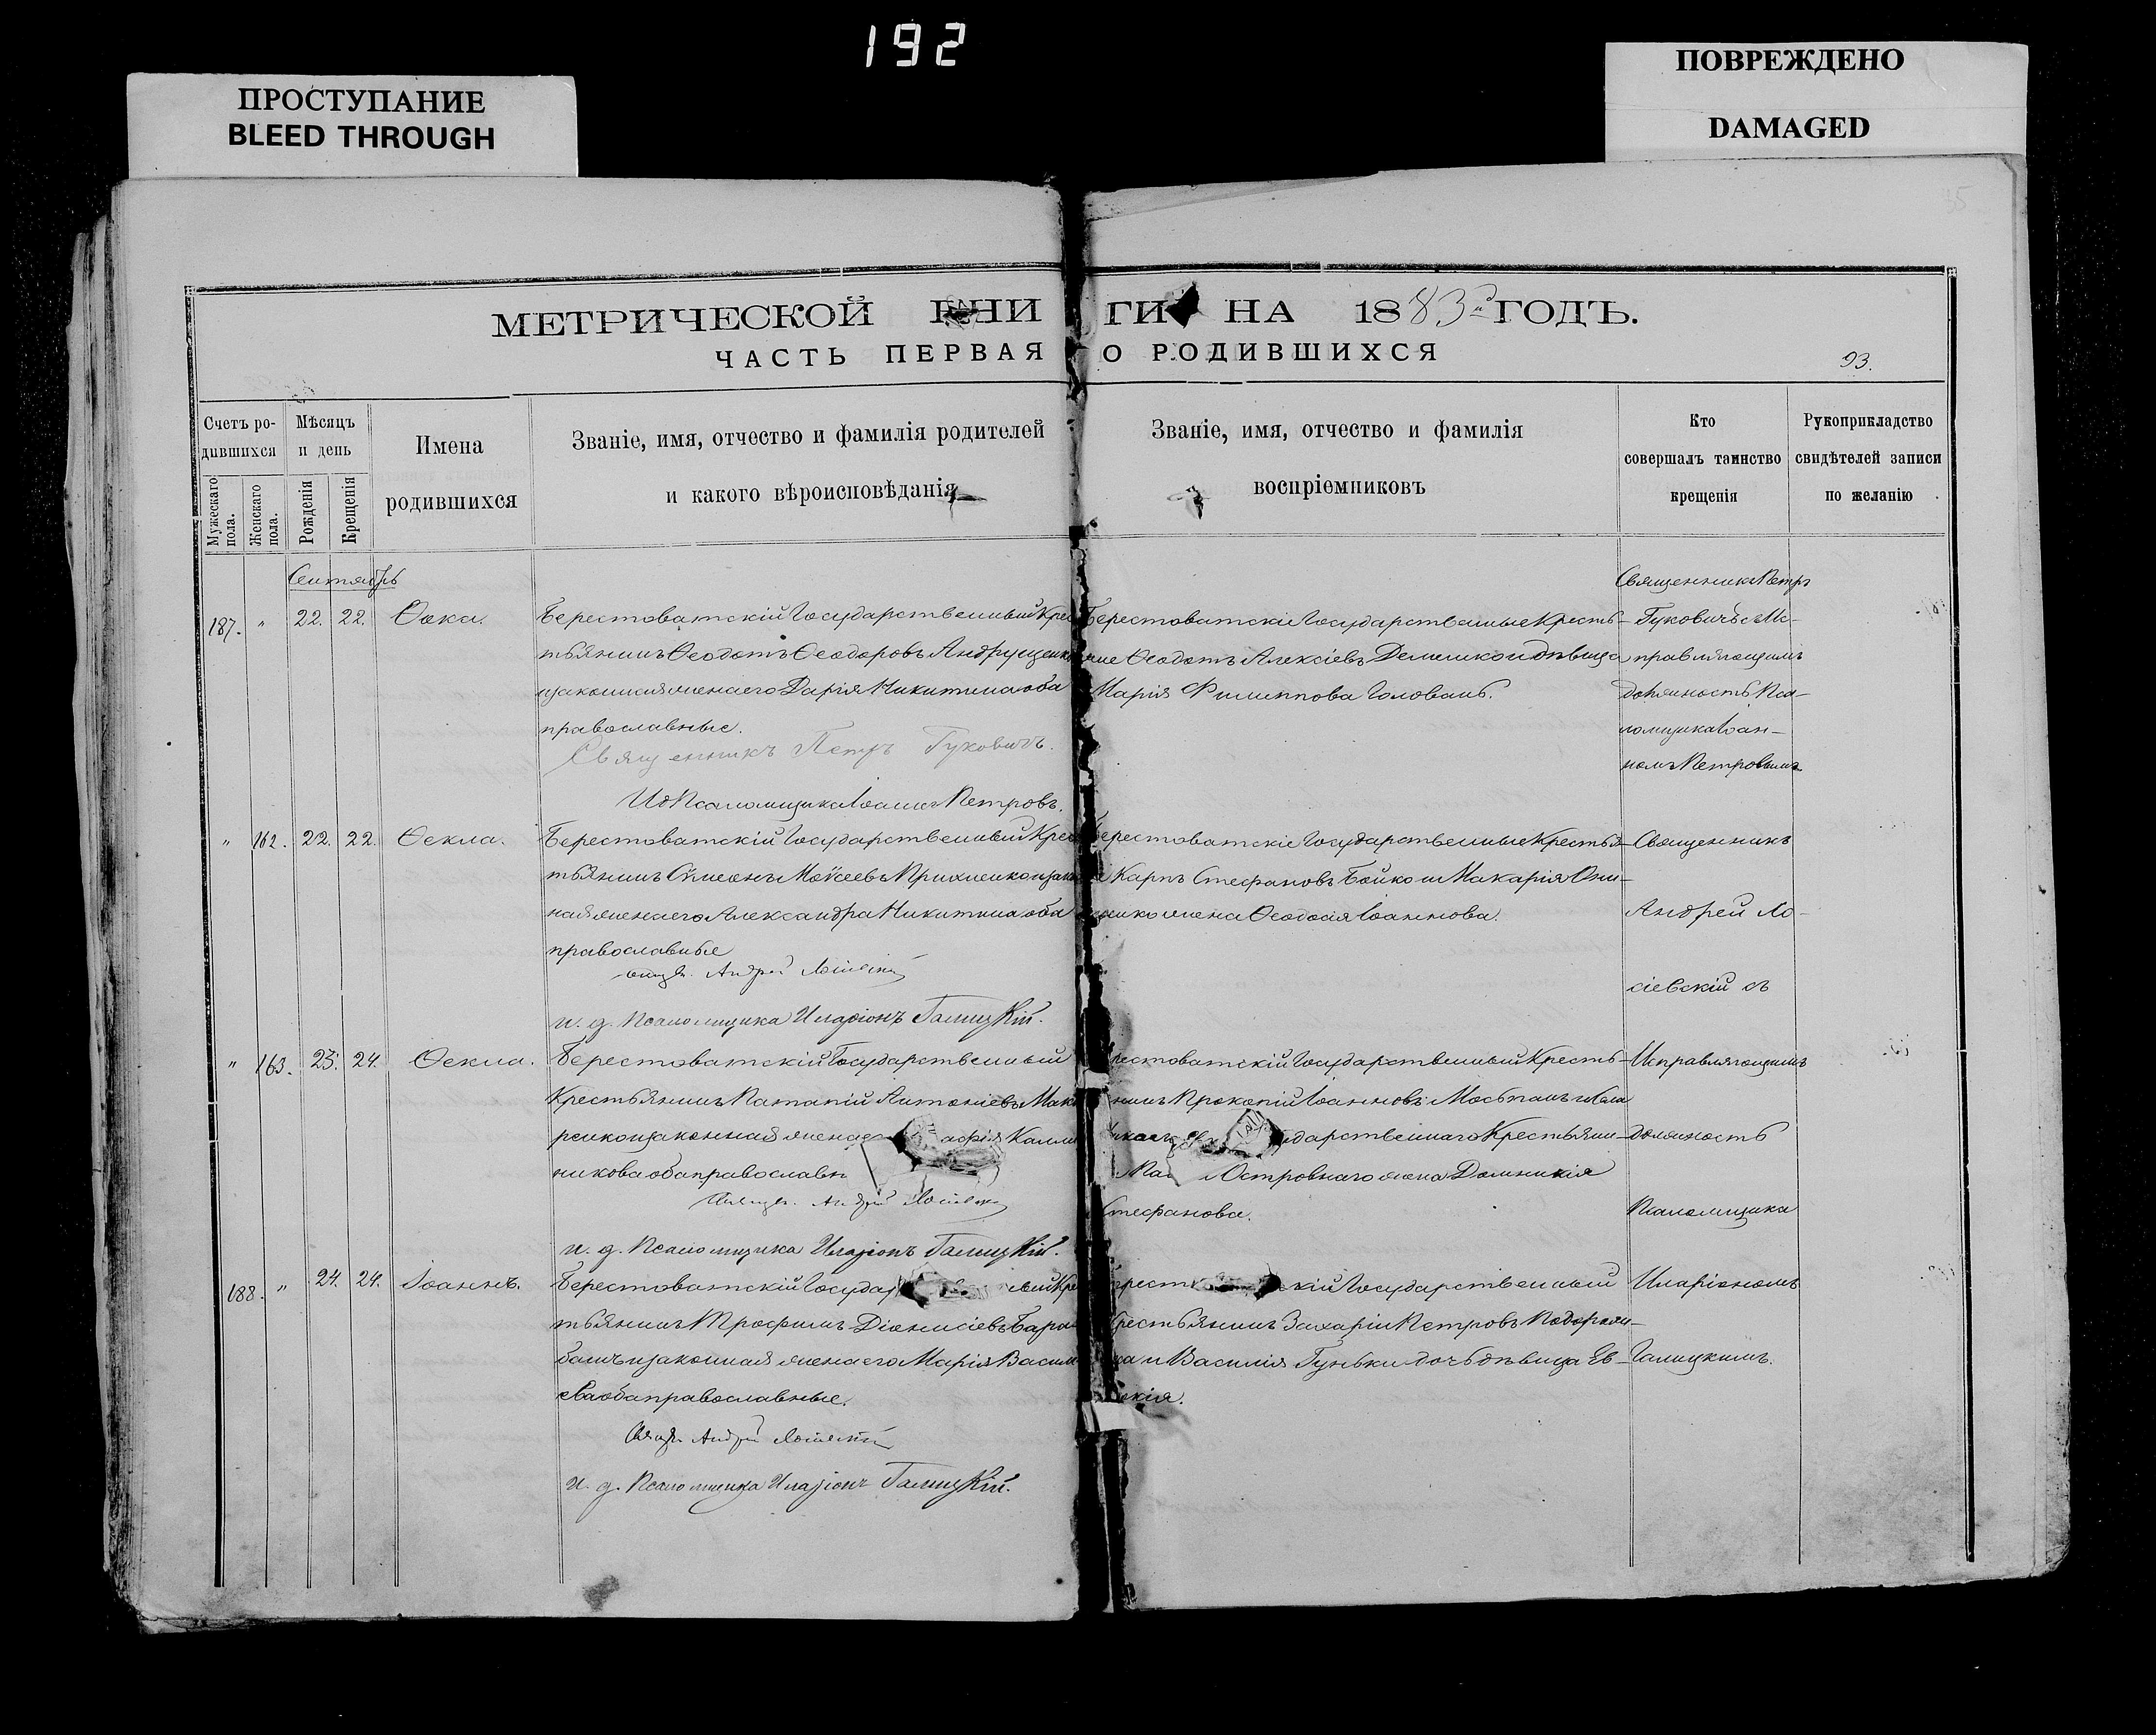 192
ПРОСТУПАНИЕ
BLEED THROUGH
ПОВРЕЖДЕНО
DAMAGED
МЕТРИЧЕСКОЙ КНИ ГИ НА 1883й ГОДЪ.
ЧАСТЬ ПЕРВАЯ О РОДИВШИХСЯ
93.
Счетъ ро-
дившихся
Мужескаго пола.
Женскаго пола.
Мѣсяцъ
и день
Рожденія
Крещенія
Имена
родившихся
Званіе, имя, отчество и фамилія родителей
и какого вѣроисповѣданія
Званіе, имя, отчество и фамилія
воспріемниковъ
Кто
совершалъ таинство
крещенія
Рукоприкладство
свидѣтелей записи
по желанію
Сентябрь
187. " 22. 22. Ѳока.
Берестоватскій Государственный Крес
тьянинъ Ѳеодотъ Ѳеодоровъ Андрущенко
изаконная жена его Дарія Никитина оба
православные.
Священникъ Петръ Гуковичъ.
Ид Псаломщика Іоаннъ Петровъ.
Берестоватскіе Государственные Кресть-
яне Ѳеодотъ Алексіевъ Демешко и дѣвица
Марія Филиппова Головань.
Священникъ Петръ
Гуковичъ с Ис-
правляющимъ
должность Пса-
ломщика Іоан-
номъ Петровымъ
" 162. 22. 22. Ѳекла.
Берестоватскій Государственный Крес
тьянинъ Сѵмеонъ Моѵсеевъ Прихненко и зако
ная жена его Александра Никитина оба
православные
свящ. Андрей Лосіевскій
и. д. Псаломщика Иларіонъ Галицкій.
Берестоватскіе Государственные Крестья-
не Карпъ Стефановъ Бойко и Макарія Они-
щенко жена Ѳеодосія Іоаннова.
Священникъ
Андрей Ло-
сіевскій съ
" 163. 23. 24. Ѳекла.
Берестоватскій Государственный
Крестьянинъ Патапій Антоніевъ Мака
ренко и законная жена афія Калли
никова оба православн
Свящ. Андрей Лосіевск
и. д. Псаломщика Иларіонъ Галицкій.
рестоватскій Государственный Кресть-
нинъ Прокопій Іоанновъ
ударственнаго Крестьяни-
Островнаго жена Домникія
Стефанова.
Исправляющимъ
должность
Псаломщика
188. " 24. 24. Іоаннъ.
Берестоватскій Государ ный Кре
тьянинъ Трофимъ Діонисіевъ Бара
башъ и законная жена его Марія Васил
ева оба православные.
Свящ. Андрей Лосіевскій
и. д. Псаломщика Иларіонъ Галицкій.
ерест кій Государственный
Крестьянинъ Захарій Петровъ
ка и Василія Гуньки дочь дѣвица Ев-
докія.
Иларіономъ
Галицкимъ.